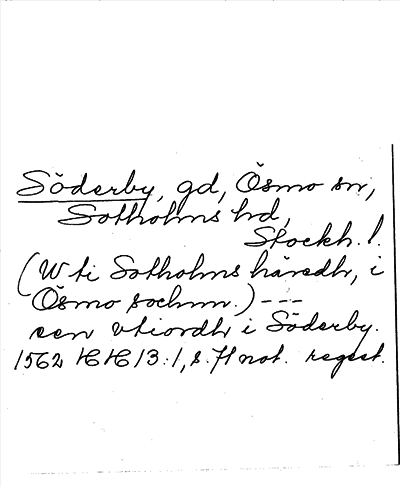 Söderby, gd, Ösmo sn,
Sotholms hd,
Stockh. l.
(W ti Sotholms häredh, i
Ösmo sochnn.) ---
een vtiordh i Söderby.
1562 HH 13:1, s. 71 not. regest.